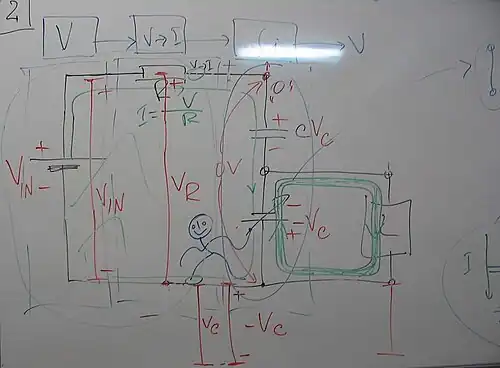 2
V V→I V
V→I
+ R + - +
I = V/R "0"
+ + C VC
VIN - -
VIN VR V
- -VC
+
-
- +
VC -VC
-
I